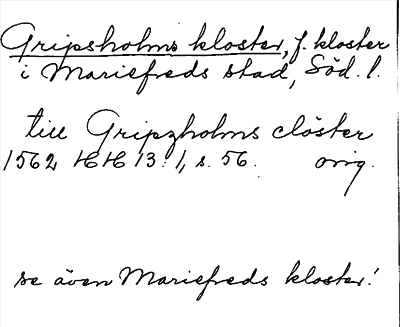 Gripsholms kloster, f. kloster
i Mariefreds stad, Söd. l.
till Gripzholms clöster
1562 HH 13: 1, s. 56. orig.
se även Mariefreds kloster!